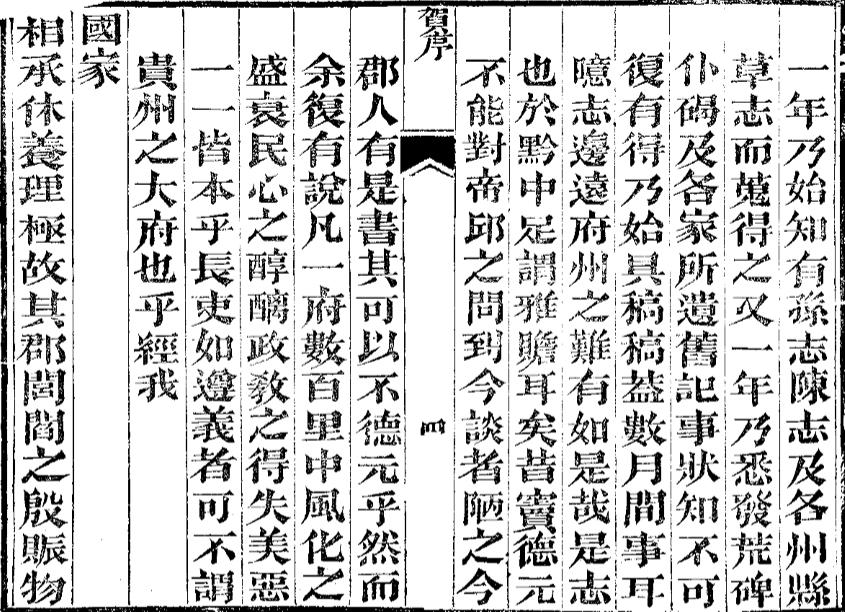 一年乃始知有孫志陳志及各州縣
草志而蒐得之又一年乃悉發荒碑
仆碣及各家所遺舊記事狀知不可
復有得乃始具稿稿葢數月間事耳
噫志邊遠府州之難有如是哉是志
也於黔中足謂雅贍耳矣昔竇德元
不能對帝邱之問到今談者陋之今
賀序
四
郡人有是書其可以不德元乎然而
余復有說凡一府數百里中風化之
盛衰民心之醇醨政敎之得失美惡
一一皆本乎長吏如遵義者可不謂
貴州之大府也乎經我
國家
相承休養理極故其郡閭閻之殷賑物